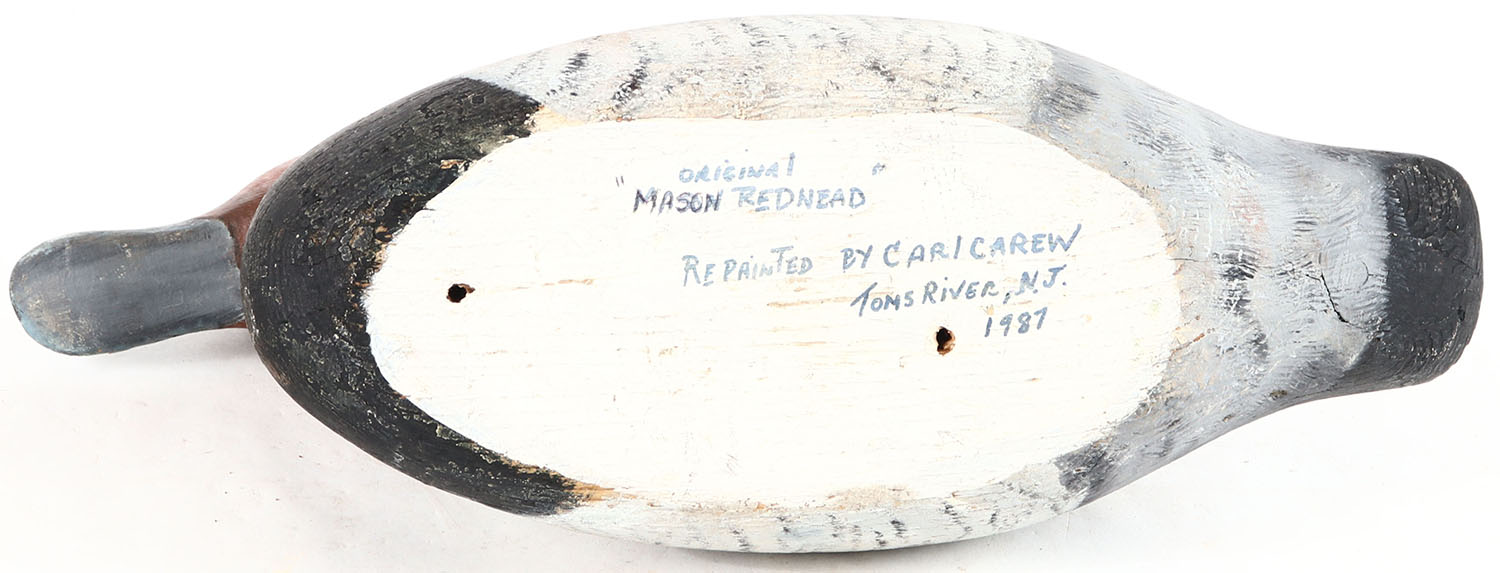 ORIGINAl
"MASON REDHEAD"
REPAINTED BY CARl CAREW
TOMS RIVER, N.J.
1987